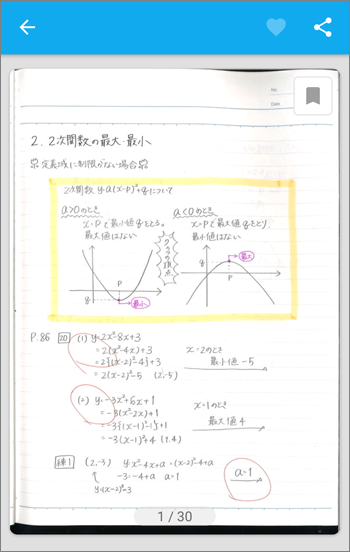 No.
Date
2. 2次関数の最大・最小
定義域に制限がない場合
2次関数 y=a(x-p)²+qについて
a>0のとき
x=pで最小値qをとる。
最大値はない
a<0のとき
x=pで最大値qをとり、
最小値はない
グラフの頂点
P
q
最小
最大
q
P
P.86 20 (1) y=2x²-8x+3
=2(x²-4x)+3
=2{(x-2)²-4}+3
=2(x-2)²-5 (2,-5)
x=2のとき
最小値-5
(2) y=-3x²+6x+1
=-3(x²-2x)+1
=-3{(x-1)²-1}+1
=-3(x-1)²+4 (1,4)
x=1のとき
最大値4
練1 (2,-3) y=x²-4x+a=(x-2)²-4+a
-3=-4+a a=1
y=(x-2)²-3
a=1
1 / 30